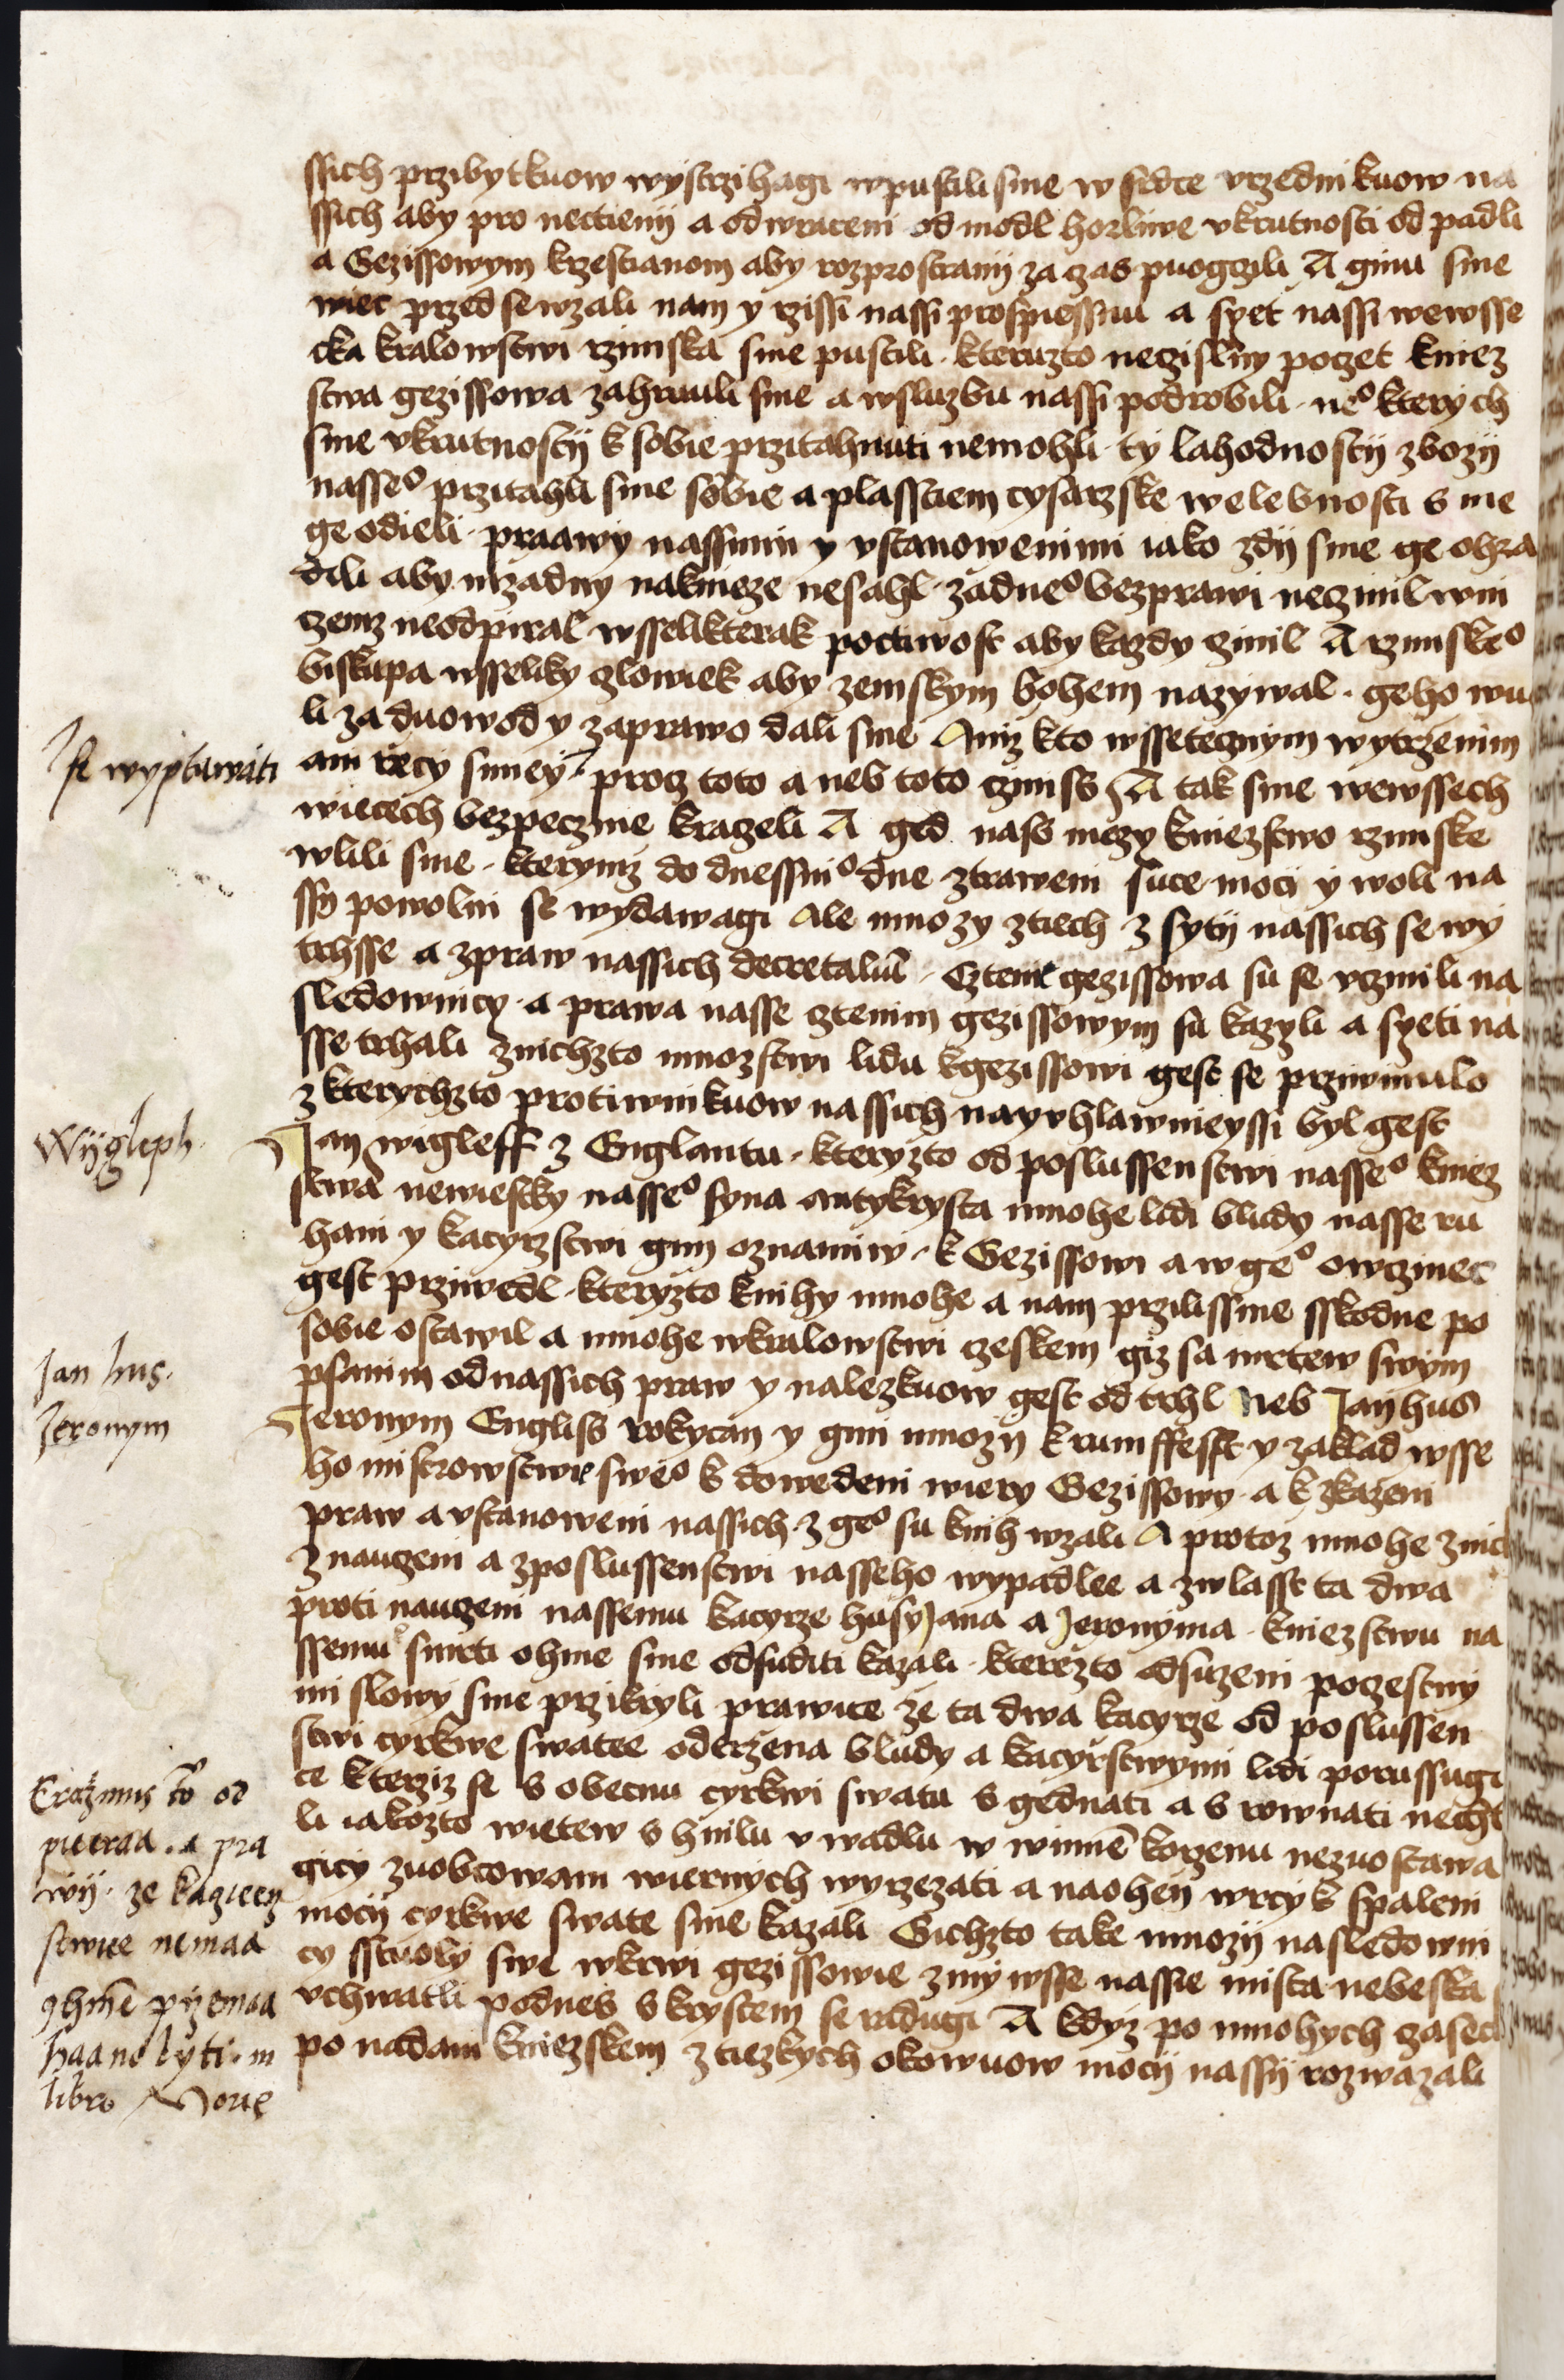 ssich przibytkuow wystrzihagi wpustili sme w srdce vrzednikuow na
ssich aby pro nectienij a odwraceni od modl horliwe vkrutnosti od padli
a Gezissowym krzestianom aby rozprostranij za czas puogczili A ginu sme
wiec przed se wzali nam y rzissi nassi prospiessnu a syet nassi wewsse
cka kralowstwi rzimska sme pustili · kteruzto neczislny poczet kniez
stwa gezissowa zahrnuli sme a wsluzbu nassi podrobili · neo kterych
sme vkrutnostij k sobie przitahnuti nemohli · ty lahodnostij zbozij
nasseo przitahli sme sobie a plasstiem cysarzske welebnosti s me
ge odieli · praawy nassimi y vstanowenimi iako zdij sme ge ohra
dili aby nizadny nakneze nesahl · zadneo bezprawi neczinil wni
czemz neodpiral wsselikterak poctiwost aby kazdy czinil A rzimskeo
biskupa wsseliky czlowiek aby zemskym bohem nazywal · geho wuo
li za duowod y zaprawo dali sme Aniz kto wssetecznym wytrzenim
ani recy smiey procz toto a neb toto czinis A tak sme wewssech
wiecech bezpeczne kraczeli A ged nass mezy kniezstwo rzimske
wlili sme · kterymz do dnessnio dne ztraweni suce moci y woli na
ssij powolni se wydawagi Ale mnozy ztiech z sytij nassich se wy
trhsse a zpraw nassich decretaluom · Cztenie gezissowa su se vczinili na
sledownicy · a prawa nasse cztenim gezissowym su kazyli a syeti na
sse trhali znichzto mnozstwi lidu kgezissowi gest se przwinulo
z kterychzto protiwnikuow nassich nayvhlawnieyssi byl gest
Jan wigleff z Englantu · kteryzto od poslussenstwi nasseo kniez
stwa newiestky nasseo syna antykrysta mnohe lidi bludy nasse ru
hani y kacyrzstwi gim oznamiw · k Gezissowi a w geo owczinec
gest przwedl · kteryzto knihy mnohe a nam przilissme sskodne po
sobie ostawil a mnohe wkralowstwi czeskem giz sa mrtew swym
psanim odnassich praw y nalezkuow gest od trhl Neb Jan hus
Jeronym Engliss rokycan y gini mnozij k rumffesst y zaklad wsse
ho mistrowstwie sweo k dowedeni wiery Gezissowy · a k zkazeni
praw a vstanoweni nassich · z geo su knih wzali A protoz mnohe znich
z nauczeni a zposlussenstwi nasseho wypadlee a zwlasst ta dwa
proti nauczeni nassemu kacyrze husy Jana a Jeronyma · kniezstwu na
ssemu smrti ohnie sme odsuditi kazali · kterezto odsuzeni poczestny
mi slowy sme przikryli prawice ze ta dwa kacyrze od poslussen
stwi cyrkwe swatee odtrzena bludy a kacyrstwymi lidi porussugi
ce kterziz se s obecnu cyrkwi swatu s gednati a s rownati nechtie
li iakozto wietew s hnilu v wadlu w winnem korzenu nezuostawa
gicy zuobcowani wiernych wyrzezati a naohen wrcy k spaleni
mocij cyrkwe swate sme kazali Gichzto take mnozij nasledowni
cy sstuoly swe wkrwi gezissowie zmywsse nassie mista nebeska
vchwatili podnes s krystem se radugi A kdyz po mnohych czasech
po nadani kniezskem z tiezkych okowuow mocij nassij rozwazali
se wyptawati
Wijgleph
Jan hus.
Jeronym
Erazmus to od
pieeraa · a pra
wij · ze kazieez
stwiee nemaa
ohnie pijemaa
haano byti · in
libro Morie